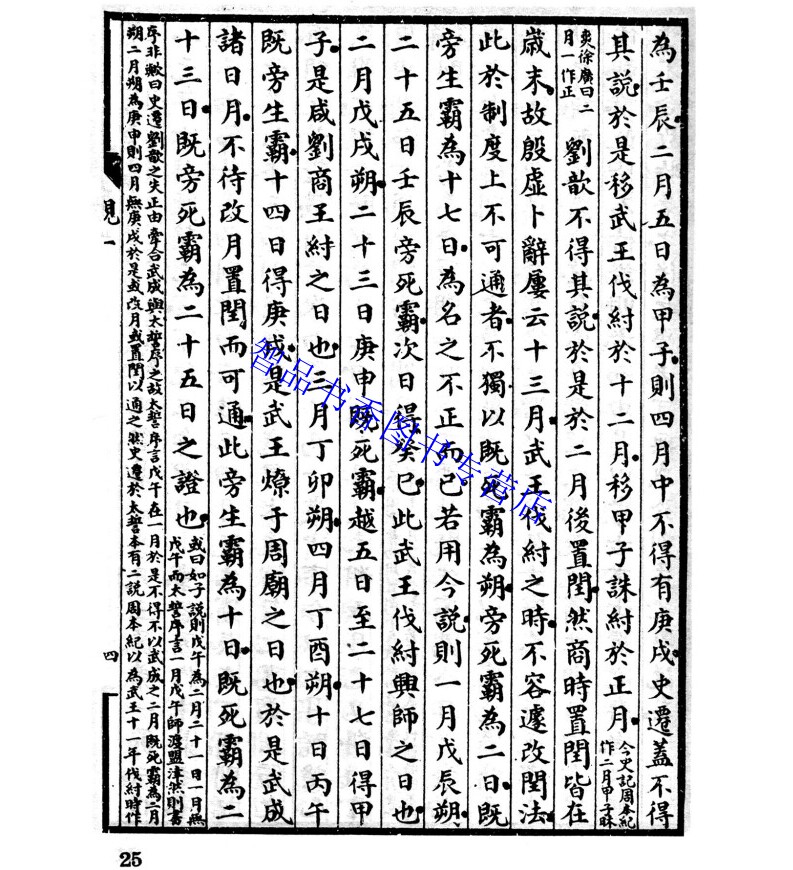 為壬辰二月五日為甲子則四月中不得有庚戌史遷蓋不得
其說於是移武王伐紂於十二月移甲子誅紂於正月今史記周本紀作二月甲子昧
爽徐廣曰二月一作正劉歆不得其說於是於二月後置閏然商時置閏皆在
歲末故殷虛卜辭屢云十三月武王伐紂之時不容遽改閏法
此於制度上不可通者不獨以既死霸為朔旁死霸為二日既
旁生霸為十七日為名之不正而已若用今說則一月戊辰朔
二十五日壬辰旁死霸次日得癸巳此武王伐紂興師之日也
二月戊戌朔二十三日庚申既死霸越五日至二十七日得甲
子是咸劉商王紂之日也三月丁卯朔四月丁酉朔十日丙午
既旁生霸十四日得庚戌是武王燎于周廟之日也於是武成
諸日月不待改月置閏而可通此旁生霸為十日既死霸為二
十三日既旁死霸為二十五日之證也或曰如子說則戊午為二月二十一日一月無戊午而太誓序言一月戊午師渡盟津然則書
序非歟曰史遷劉歆之失正由牽合武成與太誓序之故太誓序言戊午在一月於是不得不以武成之二月既死霸為二月
朔二月朔為庚申則四月無庚戌於是或改月或置閏以通之然史遷於太誓本有二說周本紀以為武王十一年伐紂時作
觀一
四
25
智品书香图书专营店